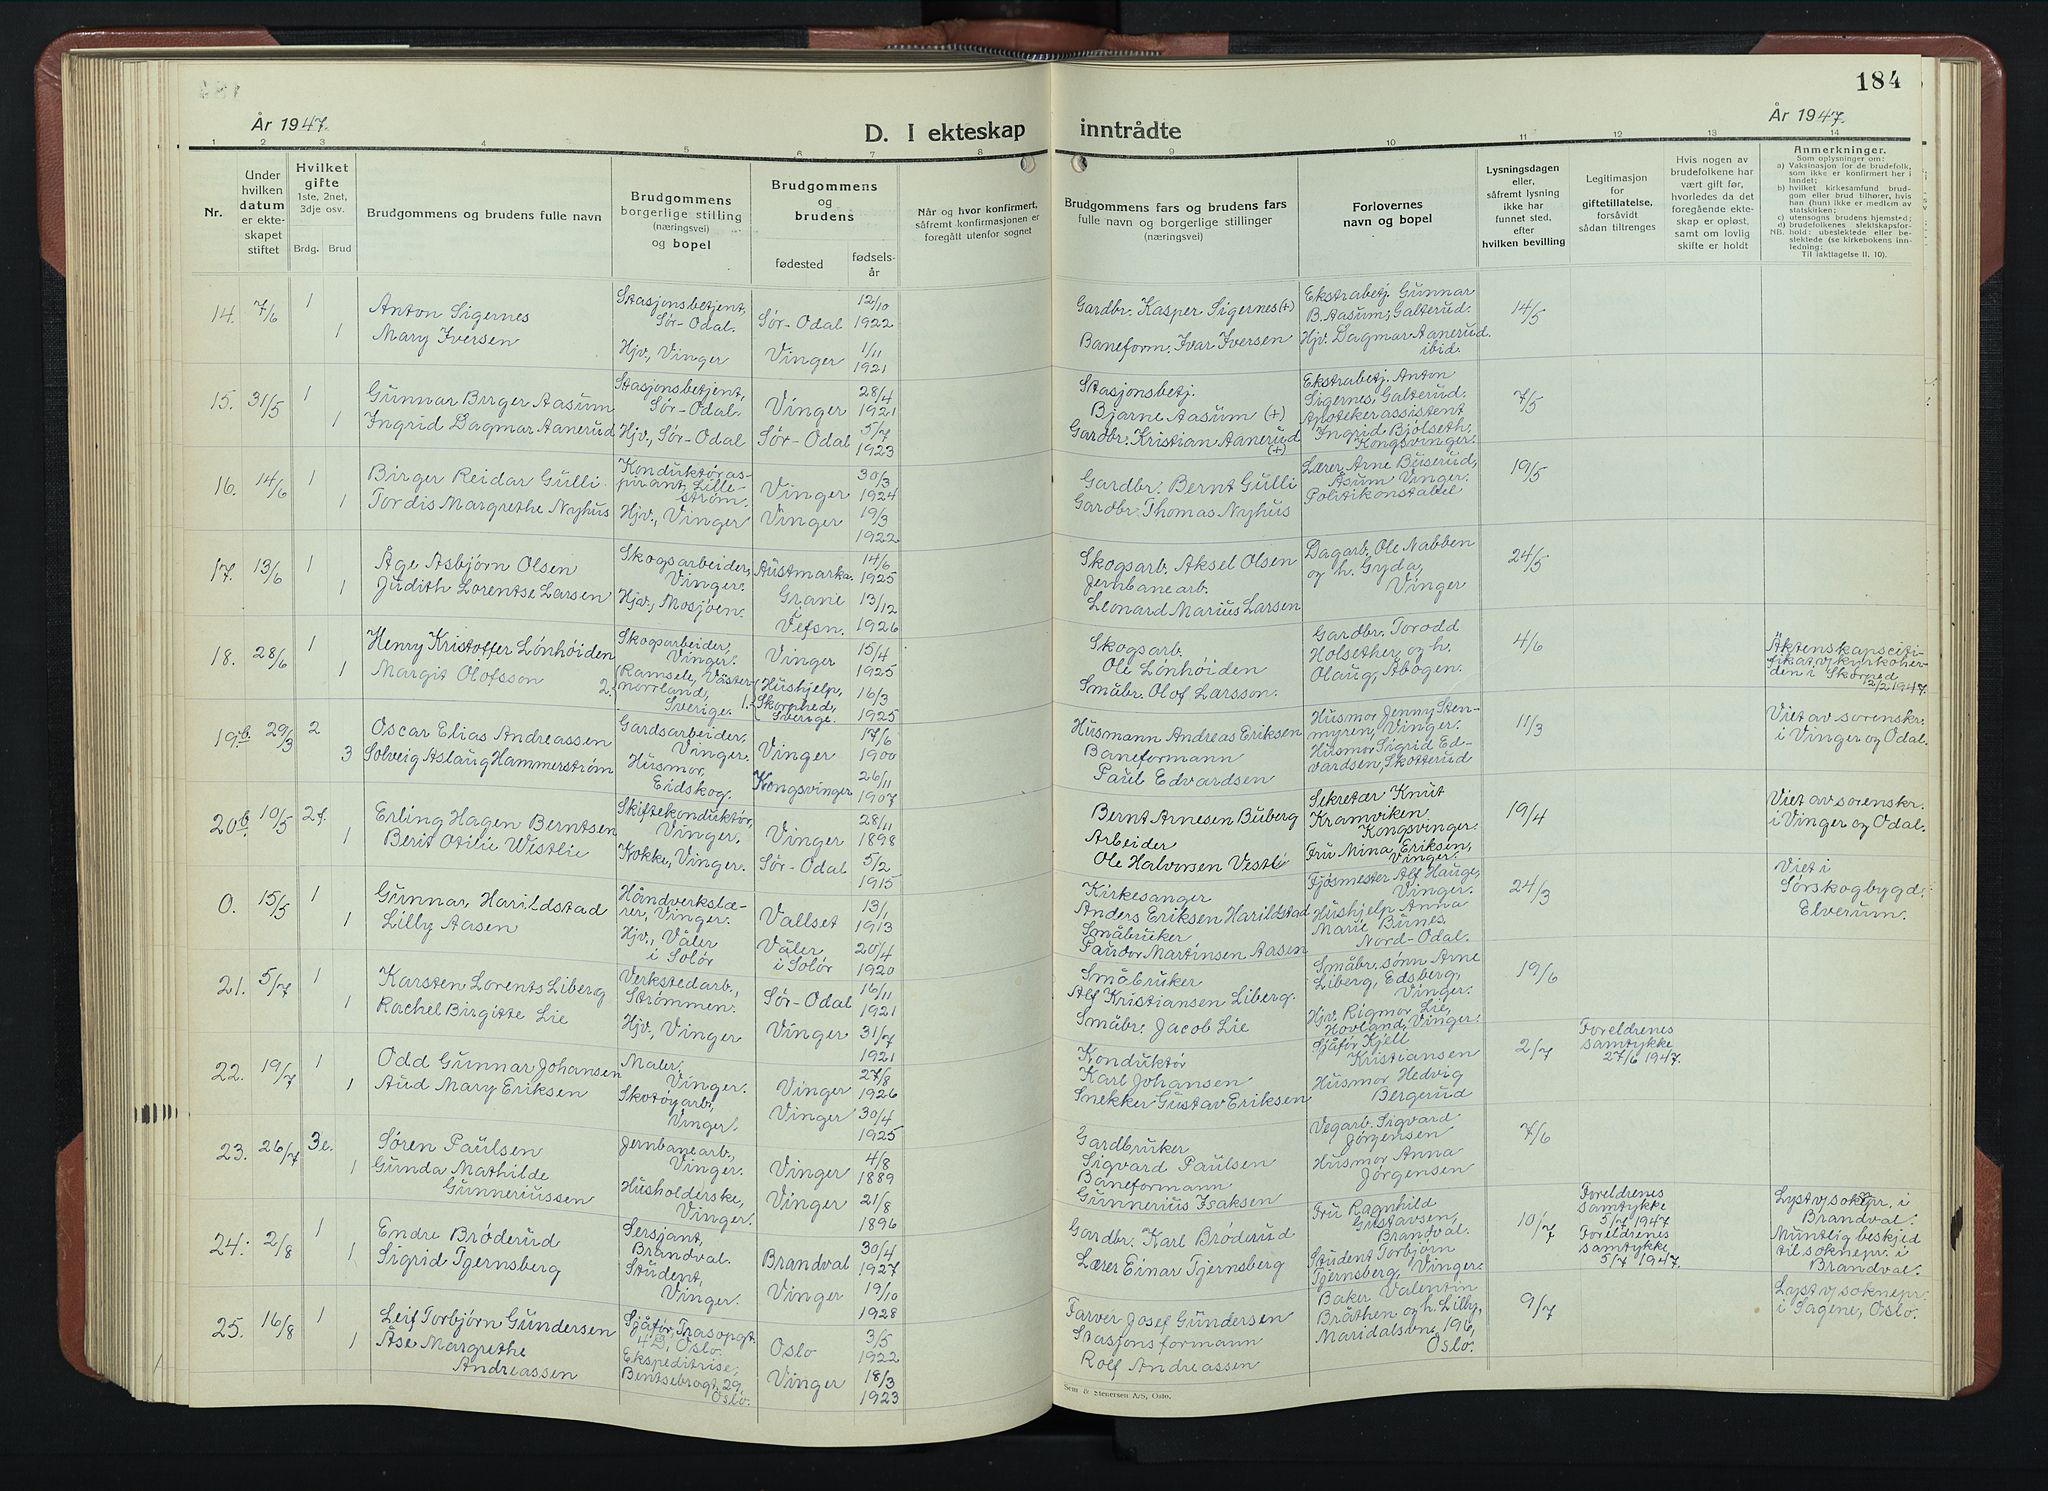 184
År 1947.
D. I ekteskap inntrådte
År 1947.
1 2 3 4 5 6 7 8 9 10 11 12 13 14
Nr.
Under
hvilken
datum
er ekte-
skapet
stiftet
Hvilket
gifte
1ste, 2net,
3dje osv.
Brdg. Brud
Brudgommens og brudens fulle navn
Brudgommens
borgerlige stilling
(næringsvei)
og bopel
Brudgommens
og
brudens
fødested
fødsels-
år
Når og hvor konfirmert,
såfremt konfirmasjonen er
foregått utenfor sognet
Brudgommens fars og brudens fars
fulle navn og borgerlige stillinger
(næringsvei)
Forlovernes
navn og bopel
Lysningsdagen
eller,
såfremt lysning
ikke har
funnet sted,
efter
hvilken bevilling
Legitimasjon
for
giftetillatelse,
forsåvidt
sådan tiltrenges
Hvis nogen av
brudefolkene har
vært gift før,
hvorledes da det
foregående ekte-
skap er opløst,
samt om lovlig
skifte er holdt
Anmerkninger.
Som oplysninger om:
a) Vaksinasjon for de brudefolk,
som ikke er konfirmert her i
landet;
b) hvilket kirkesamfund brud-
gom eller brud tilhører, hvis
han (hun) ikke er medlem av
statskirken;
c) utensogns brudens hjemsted;
d) brudefolkenes slektskapsfor-
NB. hold: ubeslektede eller be-
slektede (se kirkebokens inn-
ledning:
Til iakttagelse II. 10).
14. 7/6 1
Anton Sigernes
1 Mary Iversen
Stasjonsbetjent,
Sør-Odal.
Hjv., Vinger
Sør-Odal
12/10
1922
Vinger
1/11
1921
Gardbr. Kasper Sigernes (+)
Baneform. Ivar Iversen
Ekstrabetj. Gunnar
B. Aasum, Galterud.
Hjv. Dagmar Aanerud
ibid.
14/5
15. 31/5 1
Gunnar Birger Aasum
1 Ingrid Dagmar Aanerud
Stasjonsbetjent,
Sør-Odal.
Hjv., Sør-Odal
Vinger
28/4
1921
Sør-Odal
5/7
1923
Stasjonsbetj.
Bjarne Aasum (+)
Gardbr. Kristian Aanerud
(+)
Ekstrabetj. Anton
Sigernes, Galterud.
Apotekerassistent
Ingrid Bjølseth,
Kongsvinger.
7/5
16. 14/6 1
Birger Reidar Gulli
1 Tordis Margrethe Nyhus
Konduktøras-
pirant, Lille-
strøm.
Hjv., Vinger
Vinger
30/3
1924
Vinger
19/3
1922
Gardbr. Bernt Gulli
Gardbr. Thomas Nyhus
Lærer Arne Buserud,
Åsum, Vinger.
Politikonstabel
19/5
17. 13/6 1
Åge Asbjørn Olsen
1 Judith Lorentse Larsen
Skogsarbeider,
Vinger.
Hjv., Mosjøen.
Austmarka.
14/6
1925
Grane
i
Vefsn.
13/12
1926
Skogsarb. Aksel Olsen
Jernbanearb.
Leonard Marius Larsen
Dagarb. Ole Nabben
og h. Gyda,
Vinger
24/5
18. 28/6 1
Henry Kristoffer Lønhøiden
1 Margit Olofsson
Skogsarbeider,
Vinger.
2. Ramsele, Väster-
norrland,
Sverige.
Vinger
15/4
1925
1. Hushjelp,
Skorped,
Sverige.
16/3
1925
Skogsarb.
Ole Lønhøiden
Småbr. Olof Larsson.
Gardbr. Torodd
Holsether og h.
Olaug, Åbogen.
4/6
Äktenskapsceti-
fikat v/ kyrkoher-
den i Skorped
2/2 1947.
19.b 29/3 2
Oscar Elias Andreassen
3 Solveig Aslaug Hammerstrøm
Gardsarbeider,
Vinger.
Husmor,
Eidskog.
Vinger
17/6
1900
Kongsvinger
26/11
1907
Husmann Andreas Eriksen
Baneformann
Paul Edvardsen
Husmor Jenny Sten-
myren, Vinger.
Husmor Sigrid Ed-
vardsen, Skotterud
11/3
Viet av sorenskr.
i Vinger og Odal.
20b. 10/5 2f.
Erling Hagen Berntsen
1 Berit Otilie Westlie
Skiftekonduktør,
Vinger.
Kokke, Vinger.
Vinger
28/11
1898
Sør-Odal
5/2
1915
Bernt Arnesen Buberg
Arbeider
Ole Halvorsen Vestli
Sekretær Knut
Kramviken
Kongsvinger.
Fru Mina Eriksen,
Vinger.
19/4
Viet av sorenskr.
i Vinger og Odal.
0. 15/5 1
Gunnar Harildstad
1 Lilly Aasen
Håndverkslæ-
rer, Vinger.
Hjv., Våler
i Solør
Vallset
13/1
1913
Våler
i Solør
20/4
1920
Kirkesanger
Anders Eriksen Harildstad
Småbruker
Paudor Martinsen Aasen
Fjøsmester Alf Hauge,
Vinger.
Hushjelp Anna
Marie Bunes.
Nord-Odal.
24/3
Viet i
Sørskogbygd.
Elverum.
21. 5/7 1
Karsten Lorents Liberg
1 Rachel Birgitte Lie
Verkstedarb.,
Strømmen.
Hjv., Vinger
Sør-Odal
16/11
1921
Vinger
31/7
1921
Småbruker
Alf Kristiansen Liberg.
Småbr. Jacob Lie
Småbr. sønn Arne
Liberg, Edsberg,
Vinger.
Hjv. Rigmor Lie,
Hovland, Vinger.
19/6
22. 19/7 1
Odd Gunnar Johansen
1 Aud Mary Eriksen
Maler,
Vinger.
Skotøyarb.,
Vinger.
Vinger
27/8
1926
Vinger
30/4
1925
Konduktør
Karl Johansen
Snekker Gustav Eriksen
Sjåfør Kjell
Kristiansen
Husmor Hedvig
Bergerud
2/7
Foreldrenes
samtykke
27/6 1947.
23. 26/7 3e.
Søren Paulsen
1 Gunda Mathilde
Gunneriussen
Jernbanearb.,
Vinger.
Husholderske,
Vinger.
Vinger
4/8
1889
Vinger
21/8
1896
Gardbruker
Sigvard Paulsen
Baneformann
Gunnerius Isaksen
Vegarb. Sigvard
Jørgensen
Husmor Anna
Jørgensen
7/6
24. 2/8 1
Endre Brøderud
1 Sigrid Tjernsberg
Sersjant,
Brandval.
Student,
Vinger.
Brandval
30/4
1927
Vinger
19/10
1928
Gardbr. Karl Brøderud
Lærer Einar Tjernsberg
Fru Ragnhild
Gustavsen,
Brandval.
Student Torbjørn
Tjernsberg, Vinger.
10/7
Foreldrenes
samtykke
5/7 1947
Foreldrenes
samtykke
5/7 1947.
Lyst v/ soknepr. i
Brandval.
Muntlig beskjed
til soknepr. i
Brandval.
25. 16/8 1
Leif Torbjørn Gundersen
1 Åse Margrethe
Andreassen
Sjåfør, Trasopgt.
4 D, Oslo.
Ekspeditrise,
Bentsebrogt. 29,
Oslo.
Oslo
3/5
1922
Vinger
18/3
1923
Farver Josef Gundersen
Stasjonsformann
Rolf Andreassen
Baker Valentin
Bråthen og h. Lilly,
Maridalsvn. 196,
Oslo.
9/7
Lyst v/ soknepr.
i Sagene, Oslo.
Sem & Stenersen A/S, Oslo.